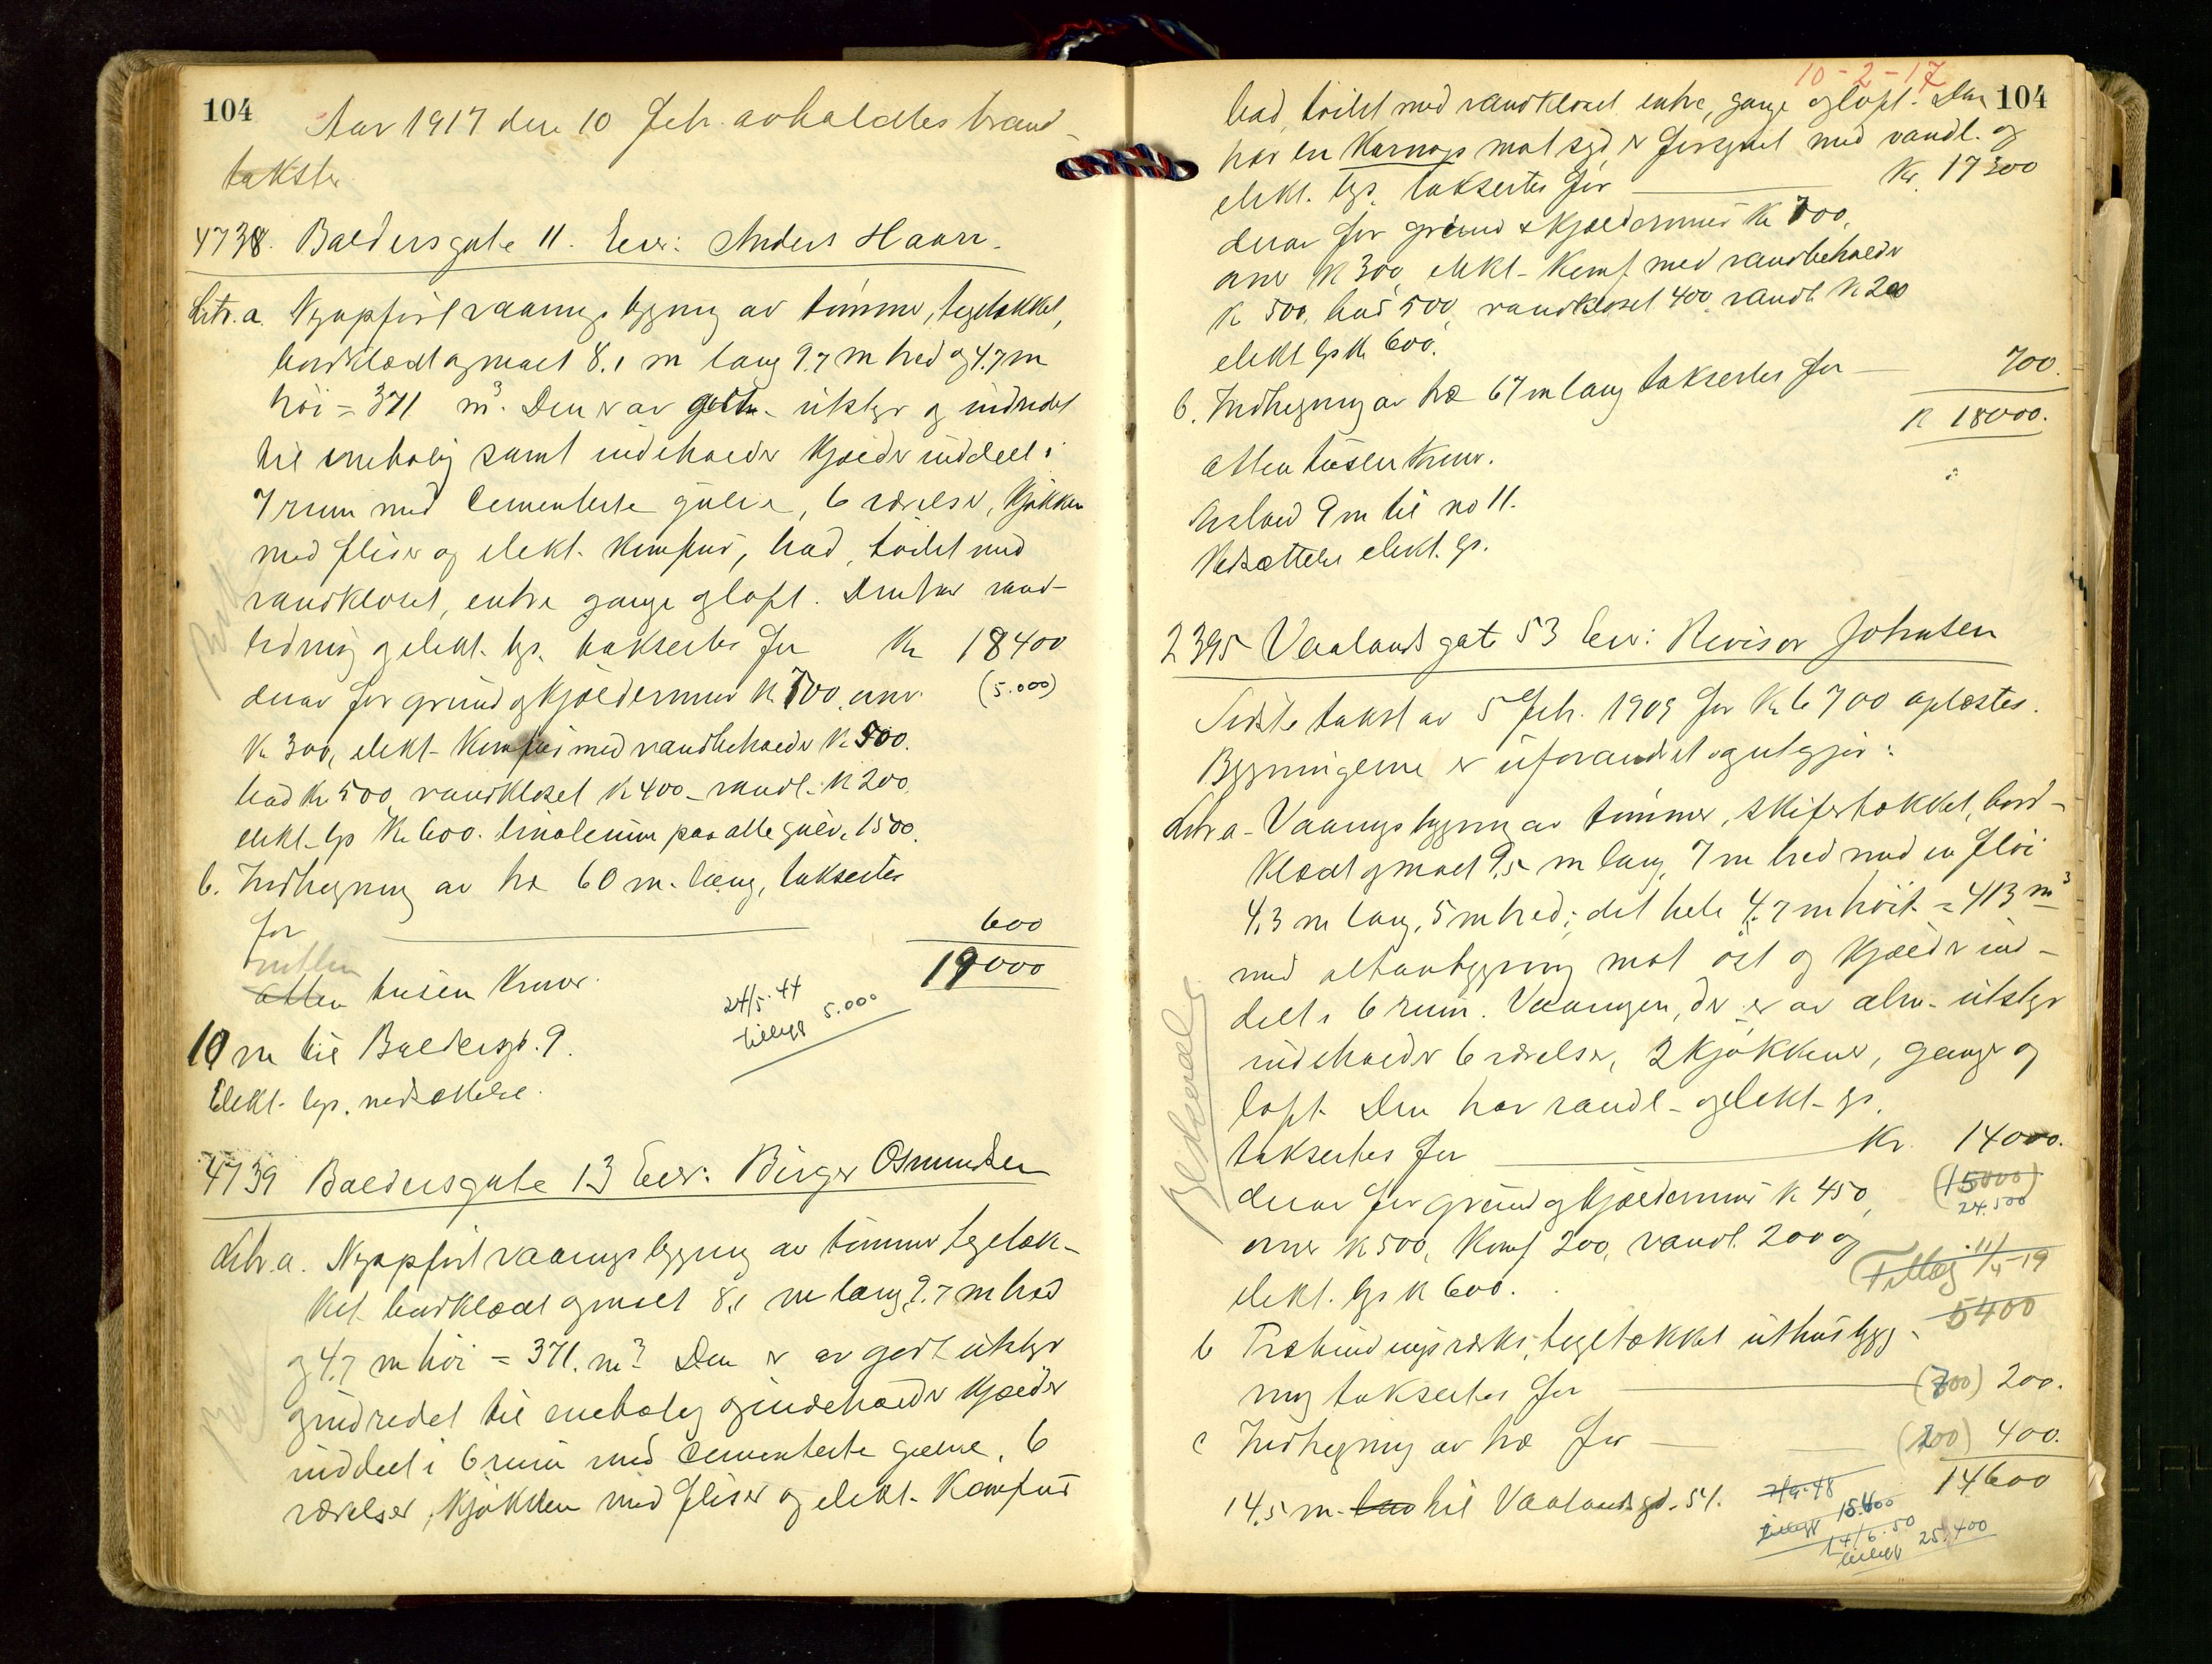 104
Aar 1917 den 10 Febr. avholdtes brand-
takster
4738. Baldersgate 11. Eier: Anders Haarr.
Litr. a. Nyopført vaaningsbygning av tømmer, tegltækket,
bordklædt og maalt 8.1 m lang 9.7 m bred og 4.7 m
høi = 371 m³. Den er av godt utstyr og indredet
til enebolig samt indeholder kjælder inddelt i
7 rum med cementerte gulve, 6 værelser, kjøkken
med fliser og elekt. komfur, bad, toilet med
vandkloset, entre gange og loft. Den har vand-
ledning og elekt. lys. takseertes for Kr 18400
derav for grund og kjældermur K. 700, ovner (5.000)
Kr 300, elekt. Komfur med vandbeholder Kr 500.
bad Kr 500, vandkloset K 400 - vandl. K 200,
elekt. lys Kr 600. linoleum paa alle gulv. 1500.
b. Indhegning av træ 60 m. lang, takseertes
for 600
nitten
atten tusen kroner. 19000
24/5.44
tillegg 5.000
10 m til Baldersgt. 9.
Elekt. lys. nedsættelse.
4739 Baldersgate 13 Eier: Birger Osmundsen
Litr. a. Nyopført vaaningsbygning av tømmer tegltæk-
ket bordklædt og maalt 8.1 m lang, 9.7 m bred
og 4.7 m høi = 371. m³. Den er av godt utstyr
og indredet til enebolig og indeholder kjælder
inddelt i 6 rum med cementerte gulve, 6
værelser, kjøkken med fliser og elekt. Komfur
10-2-17
104
bad, toilet med vandkloset entre, gange og loft. Den
har en Karnap mot syd, er forsynet med vandl. og
elekt. lys. taksertes for Kr. 17300
derav for grund & kjældermur Kr 700,
ovner K 300, elekt. Komf med vandbeholder
K 500, bad 500, vandkloset 400, vandl. K 200
elekt lys K. 600.
b. Indhegning av træ 67 m lang taksertes for 700.
K 18000.
atten tusen kroner.
Avstand 9 m til no 11.
Nedsættelse elekt. lys.
2395 Vaalandsgate 53 Eier: Revisor Johnsen
Sidste takst av 5 Febr. 1909 for Kr 6700 oplæstes.
Bygningerne er uforandret og utgjør:
Litr a. Vaaningsbygning av tømmer, skifertækket, bord-
klædt og maalt 9,5 m lang, 7 m bred med en fløi
4,3 m lang, 5 m bred; det hele 4.7 m høit = 413 m³
med altanbygning mot øst og kjælder ind-
delt i 6 rum. Vaaningen, der er av alm. utstyr
indeholder 6 værelser, 2 kjøkkener, gange og
loft. Den har vandl. og elekt. lys.
taksertes for Kr. 14000.
derav for grund og kjældermur K 450, (15000)
24.500
ovner K 500, Komf 200, vandl. 200 og
Tillæg 11/4-19
elekt. lys K 600.
5400
b Træbindingsværks, tegltækket uthusbygg-
ning taksertes for (700) 200.
c Indhegning av træ for (200) 400.
14600
14,5 m. til Vaalandsgt. 51.
7/9.48
tillegg 15.600
14/6.50
tillegg 25.400